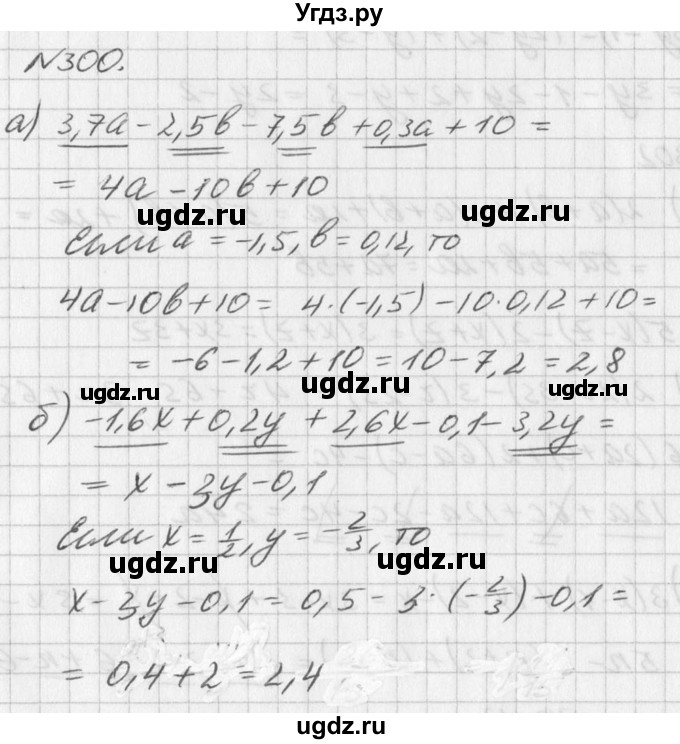 Угдз.ру
№300.
а) 3,7а - 2,5в - 7,5в + 0,3а + 10 =
= 4а - 10в + 10
Если а = -1,5, в = 0,12, то
4а - 10в + 10 = 4·(-1,5) - 10·0,12 + 10 =
= -6 - 1,2 + 10 = 10 - 7,2 = 2,8
б) -1,6х + 0,2у + 2,6х - 0,1 - 3,2у =
= х - 3у - 0,1
Если х = 1/2, у = -2/3, то
х - 3у - 0,1 = 0,5 - 3·(-2/3) - 0,1 =
= 0,4 + 2 = 2,4
ugdz.ru
ugdz.ru
ugdz.ru
ugdz.ru
ugdz.ru
ugdz.ru
ugdz.ru
ugdz.ru
ugdz.ru
ugdz.ru
ugdz.ru